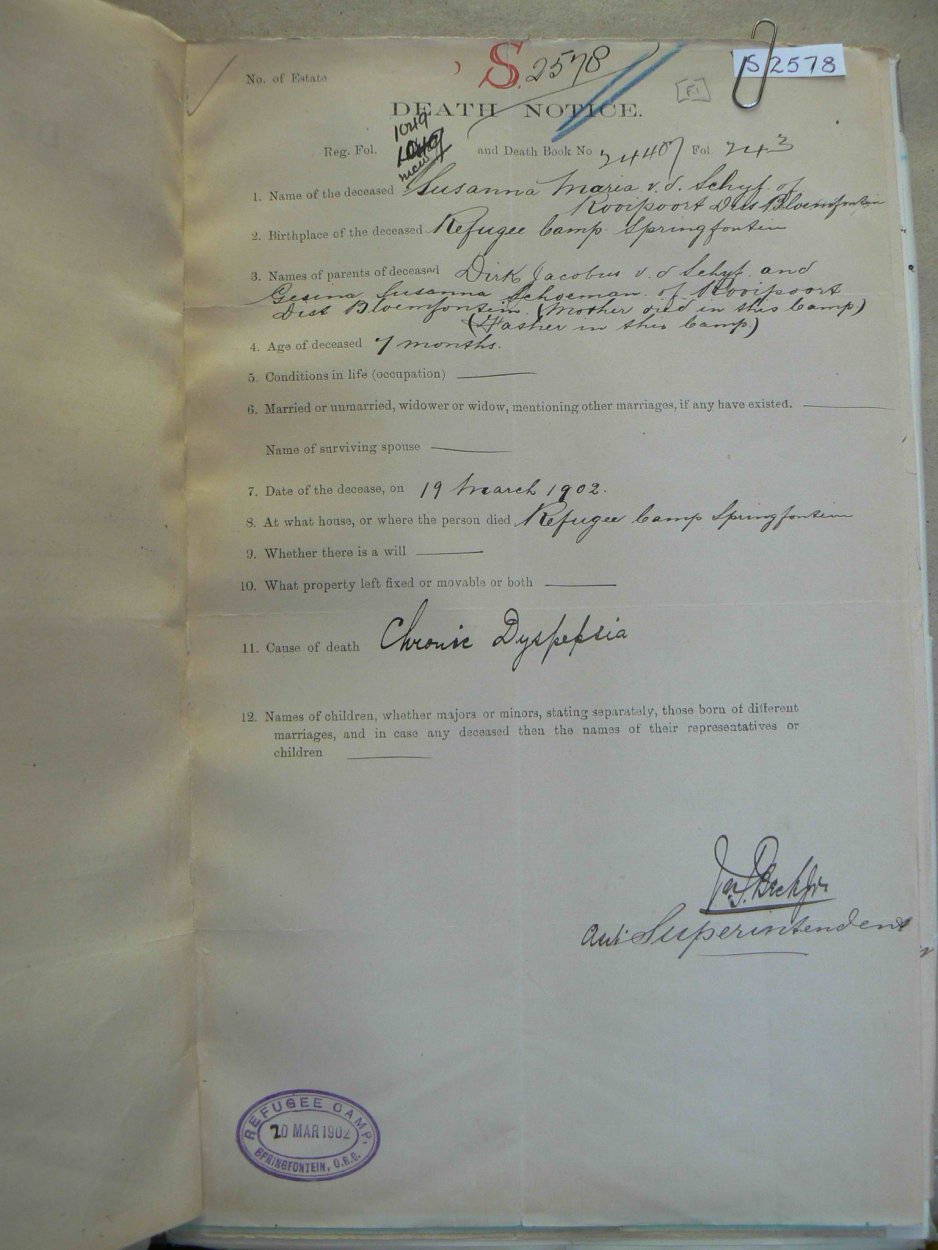 No. of Estate
S. 2578
S 2578
F1
DEATH NOTICE.
1049
Reg. Fol. and Death Book No 24407 Fol 243
1. Name of the deceased Susanna Maria v. d. Schyf of
Rooipoort Dist Bloemfontein
2. Birthplace of the deceased Refugee Camp Springfontein
3. Names of parents of deceased Dirk Jacobus v. d Schyf and
Gesina Susanna Schoeman of Rooipoort
Dist Bloemfontein. (Mother died in this Camp)
(Father in this Camp.)
4. Age of deceased 7 months.
5. Conditions in life (occupation)
6. Married or unmarried, widower or widow, mentioning other marriages, if any have existed.
Name of surviving spouse
7. Date of the decease, on 19 March 1902.
8. At what house, or where the person died Refugee Camp Springfontein
9. Whether there is a will
10. What property left fixed or movable or both
11. Cause of death Chronic Dyspepsia
12. Names of children, whether majors or minors, stating separately, those born of different
marriages, and in case any deceased then the names of their representatives or
children
Superintendent
REFUGEE CAMP,
20 MAR 1902
SPRINGFONTEIN, O.R.C.